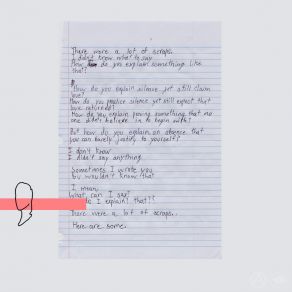 There were a lot of scraps.
I didn't know what to say
How do you explain something like
that?
How do you explain silence yet still claim
love?
How do you practice silence yet still expect that
love returned?
How do you explain loving something that no
one didn't believe in to begin with?
But how do you explain an absence that
you can barely justify to yourself?
I don't know
I didn't say anything.
Sometimes I wrote you
You wouldn't know that
I mean,
What can I say?
do I explain that??
There were a lot of scraps.
Here are some.